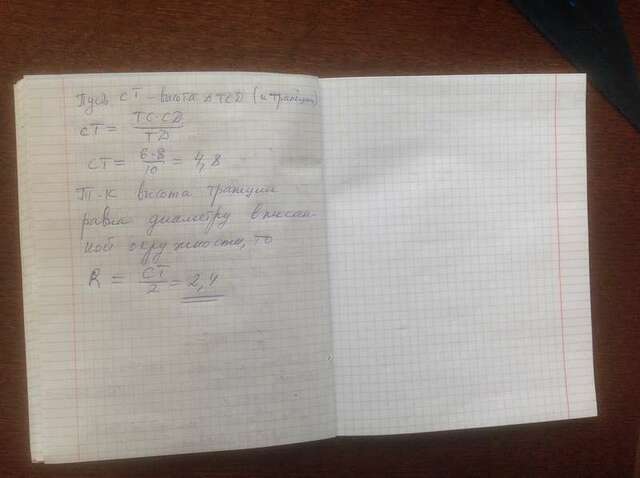 Пусть CT - высота △TCD (и трапеции)
CT = TC·CD / TD
CT = 6·8 / 10 = 4,8
Т-к высота трапеции
равна диаметру вписан-
ной окружности, то
R = CT / 2 = 2,4